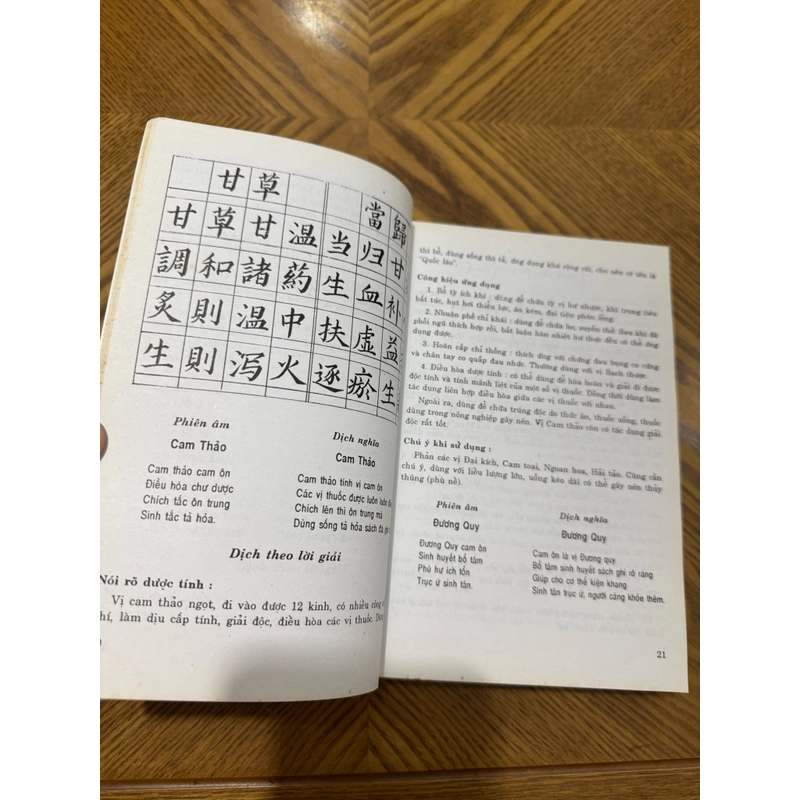 甘草 當歸
甘草甘温 当归甘
調和諸药 生血补
炙則温中 扶虛益
生則泻火 逐瘀生
Phiên âm
Cam Thảo
Cam thảo cam ôn
Điều hòa chư dược
Chích tắc ôn trung
Sinh tắc tả hỏa.
Dịch nghĩa
Cam Thảo
Cam thảo tính vị cam ôn
Các vị thuốc được luôn luôn
Chích lên thì ôn trung mà
Dùng sống tả hỏa sách đã
Dịch theo lời giải
Nói rõ dược tính :
Vị cam thảo ngọt, đi vào được 12 kinh, có nhiều công
khí, làm dịu cấp tính, giải độc, điều hòa các vị thuốc.
thì bổ, dùng sống thì tả, ứng dụng khá rộng rãi, cho nên có tên là
"Quốc lão".
Công hiệu ứng dụng
1. Bổ tỳ ích khí : dùng để chữa tỳ vị hư nhược, khí trung tiêu
bất túc, hụt hơi thiếu lực, ăn kém, đại tiện phân lỏng.
2. Nhuận phế chỉ khái : dùng để chữa ho, suyễn thở. Sau khi đã
phối ngũ thích hợp rồi, bất luận hàn nhiệt hư thực đều có thể ứng
dụng được.
3. Hoãn cấp chỉ thống : thích ứng với chứng đau bụng co cứng
và chân tay co quắp đau nhức. Thường dùng với vị Bạch thược.
4. Điều hòa dược tính : có thể dùng để hòa hoãn và giải đi được
độc tính và tính mãnh liệt của một số vị thuốc. Đồng thời dùng làm
tác dụng liên hợp điều hòa giữa các vị thuốc với nhau.
Ngoài ra, dùng để chữa trúng độc do thức ăn, thuốc uống, thuốc
dùng trong nông nghiệp gây nên. Vị Cam thảo còn có tác dụng giải
độc rất tốt.
Chú ý khi sử dụng :
Phản các vị Đại kích, Cam toại, Ngoan hoa, Hải tảo. Cũng cần
chú ý, dùng với liều lượng lớn, uống kéo dài có thể gây nên thủy
thũng (phù nề).
Phiên âm
Đương Quy
Đương Quy cam ôn
Sinh huyết bổ tâm
Phù hư ích tổn
Trục ứ sinh tân.
Dịch nghĩa
Đương Quy
Cam ôn là vị Đương quy
Bổ tâm sinh huyết sách ghi rõ ràng
Giúp cho cơ thể kiện khang
Sinh tân trục ứ, người càng khỏe thêm.
21